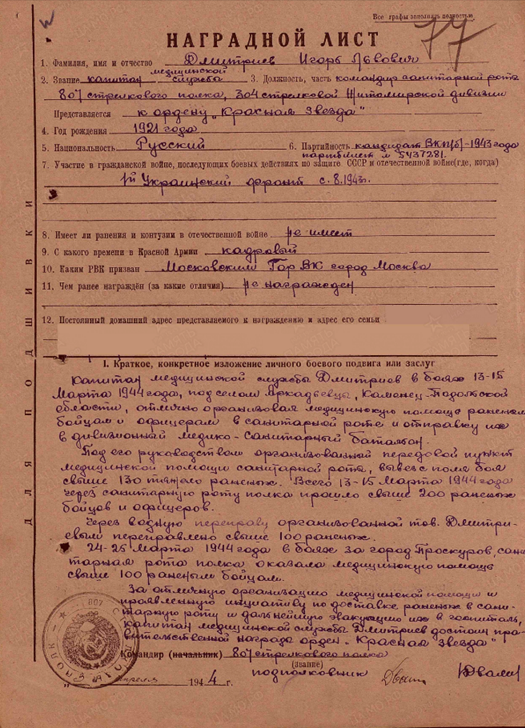 Все графы заполнять полностью
77
НАГРАДНОЙ ЛИСТ
1. Фамилия, имя и отчество Дмитриев Игорь Львович
медицинской
2. Звание капитан службы 3. Должность, часть командир санитарной роты
807 стрелкового полка, 304 стрелковой Житомирской дивизии
Представляется к ордену „Красная Звезда"
4. Год рождения 1921 года
5. Национальность Русский 6. Партийность кандидат ВКП/б/-1943 года
партбилет № 5437281.
7. Участие в гражданской войне, последующих боевых действиях по защите СССР и отечественной войне (где, когда)
1й Украинский фронт с 8.1943г.
8. Имеет ли ранения и контузии в отечественной войне не имеет
9. С какого времени в Красной Армии кадровый
10. Каким РВК призван Московским Гор ВК город Москва
11. Чем ранее награждён (за какие отличия) не награжден
12. Постоянный домашний адрес представляемого к награждению и адрес его семьи
I. Краткое, конкретное изложение личного боевого подвига или заслуг
Капитан медицинской службы Дмитриев в боях 13-15
Марта 1944 года, под селом Аркадьевцы, Каменец-Подольской
области, отлично организовал медицинскую помощь раненым
бойцам и офицерам в санитарной роте и отправку их
в дивизионный медико-санитарный батальон.
Под его руководством организованный передовой пункт
медицинской помощи санитарной роты, вывез с поля боя
свыше 130 тяжело раненых. Всего 13-15 Марта 1944 года
через санитарную роту полка прошло свыше 200 раненых
бойцов и офицеров.
Через водную переправу организованной тов. Дмитри-
евым переправлено свыше 100 раненых.
24-25 Марта 1944 года в боях за город Проскуров, сани-
тарная рота полка оказала медицинскую помощь
свыше 100 раненым бойцам.
За отличную организацию медицинской помощи и
проявленную инициативу по доставке раненых в сани-
тарную роту и дальнейшую эвакуацию их в госпиталь,
капитан медицинской службы Дмитриев достоин пра-
вительственной награды орден - „Красная Звезда"
Командир (начальник) 807 стрелкового полка
(звание)
подполковник
апреля 1944 г.
ДЛЯ ПОДШИВКИ
807